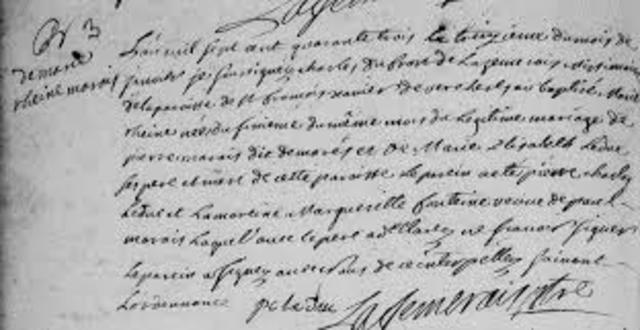 B 3
de marie
rheine marais
L'an mil sept cent quarante trois le treizieme du mois de
je soussigné charles Du frost de Lajemerais missionnaire
de la paroisse de st françois xavier de vercheres ay baptisé Marie
rheine née du même mois du legitime mariage de
pierre marais dit demarés et De Marie Elisabeth Leduc
ses pere et mere de cette paroisse Le parein a eté pierre charles
Leduc et La mareine Marguerite fonteine veuve de paul
marais Laquelle avec le pere a declaré ne sçavoir signer
Le parein a signé avec nous de ce interpellez suivant
Lordonnance pc le duc Lajemerais ptre